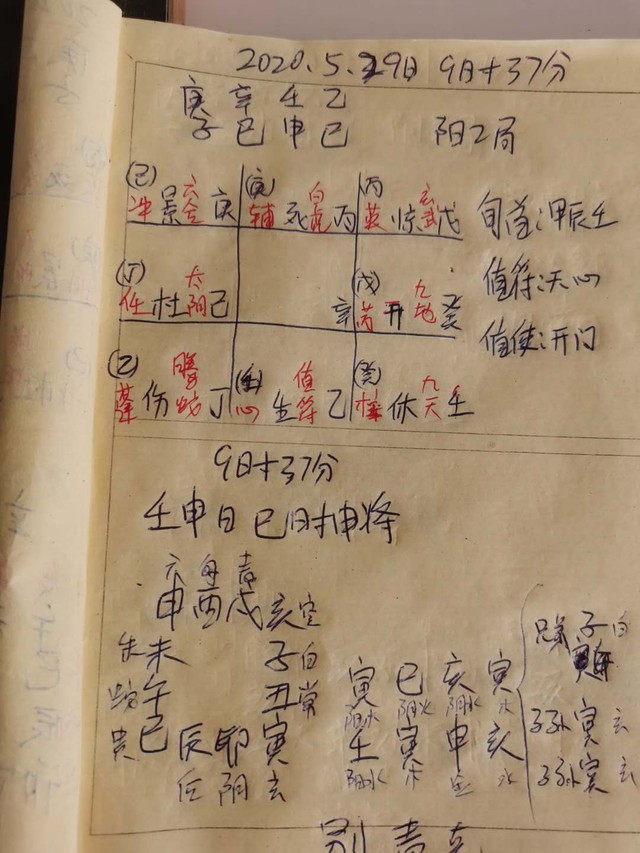 2020.5.29日 9时37分
庚 辛 壬 乙
子 巳 申 巳 阳2局
(己) (庚) 丙
冲 景 六合 庚 辅 死 白虎 丙 英 惊 玄武 戊
旬首:甲辰壬
(丁) (戊)
任 杜 太阴 己 辛 芮 开 九地 癸
值符:天心
值使:开门
(乙) (壬) (癸)
蓬 伤 螣蛇 丁 心 生 值符 乙 柱 休 九天 壬
9时37分
壬申日 巳时申将
六 青
申 酉 戌 亥 空
未 子 白
午 丑 常
贵 巳 辰 卯 寅
后 阴 玄
寅 巳 亥 寅
阳木 阴火 阴水 木
壬 寅 申 亥
阳水 木 金 水
子 白
子孙 寅 玄
子孙 寅 玄
别 青